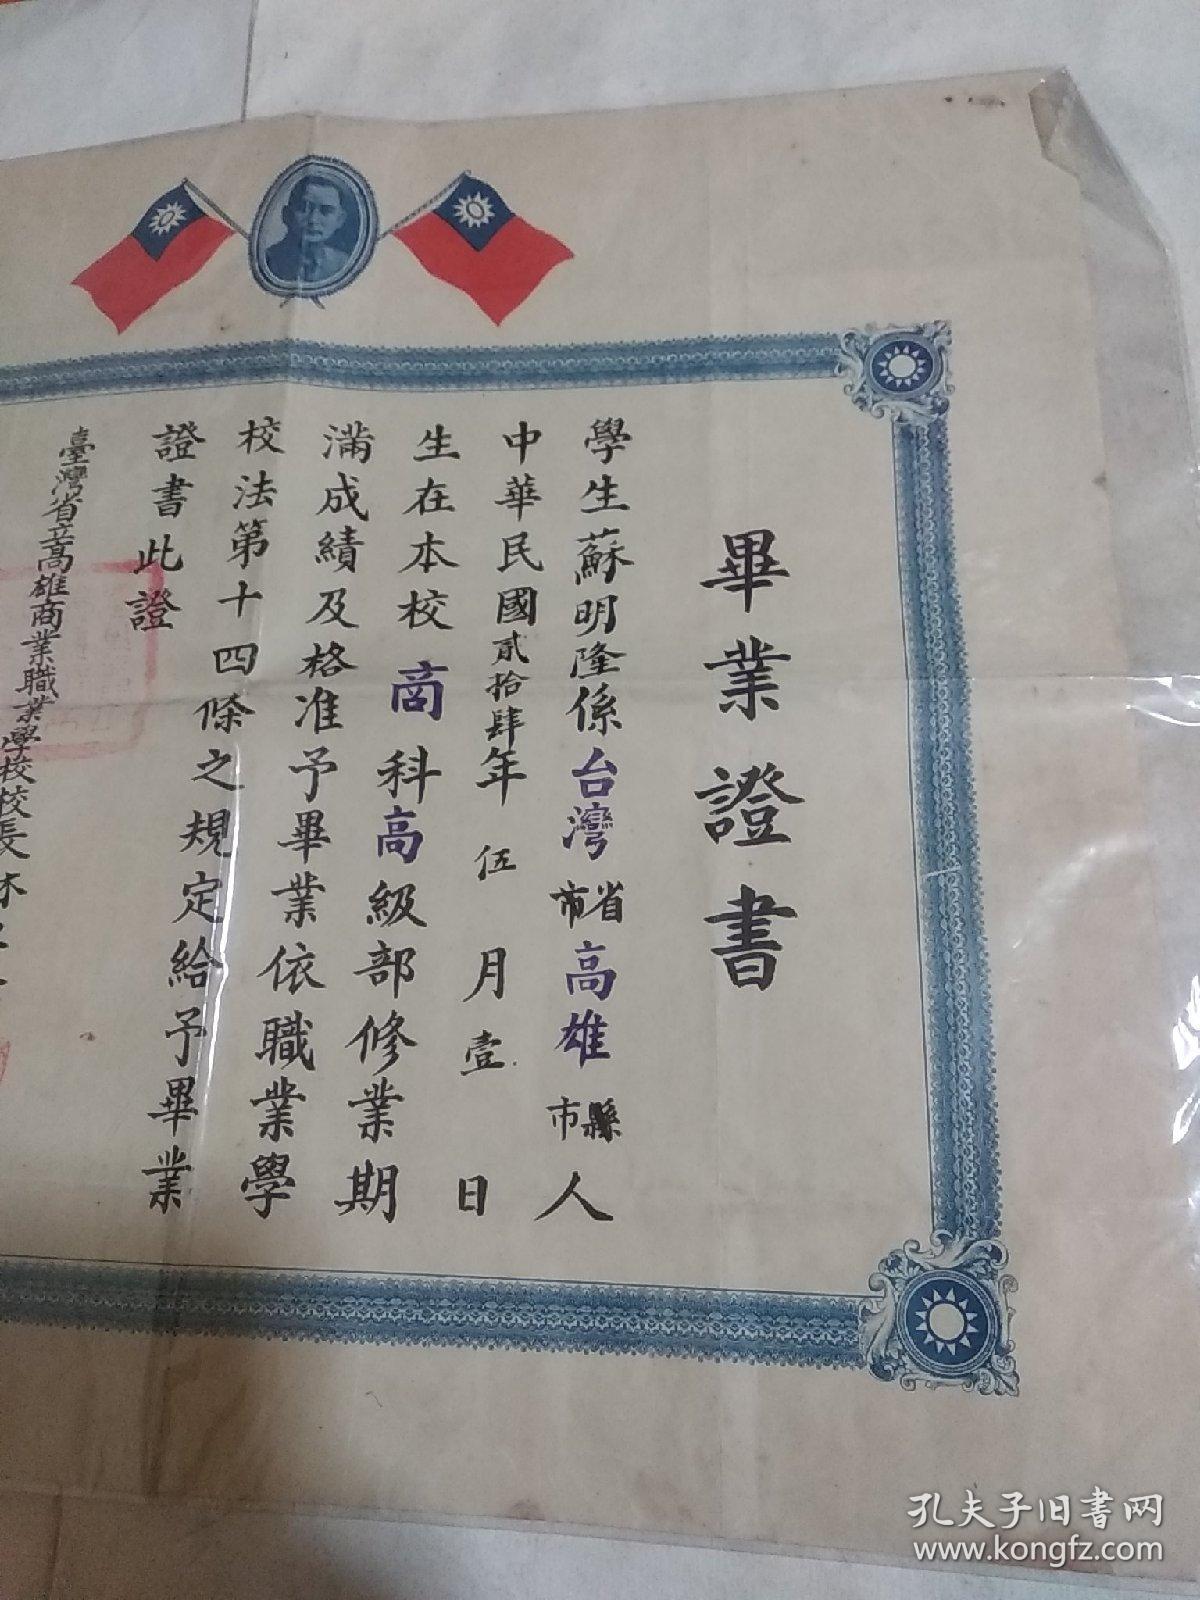 畢業證書
學生蘇明隆係台灣省市高雄縣市人
中華民國貳拾肆年伍月壹日
生在本校商科高級部修業期
滿成績及格准予畢業依職業學
校法第十四條之規定給予畢業
證書此證
臺灣省立高雄商業職業學校校長林
孔夫子旧书网
www.kongfz.com